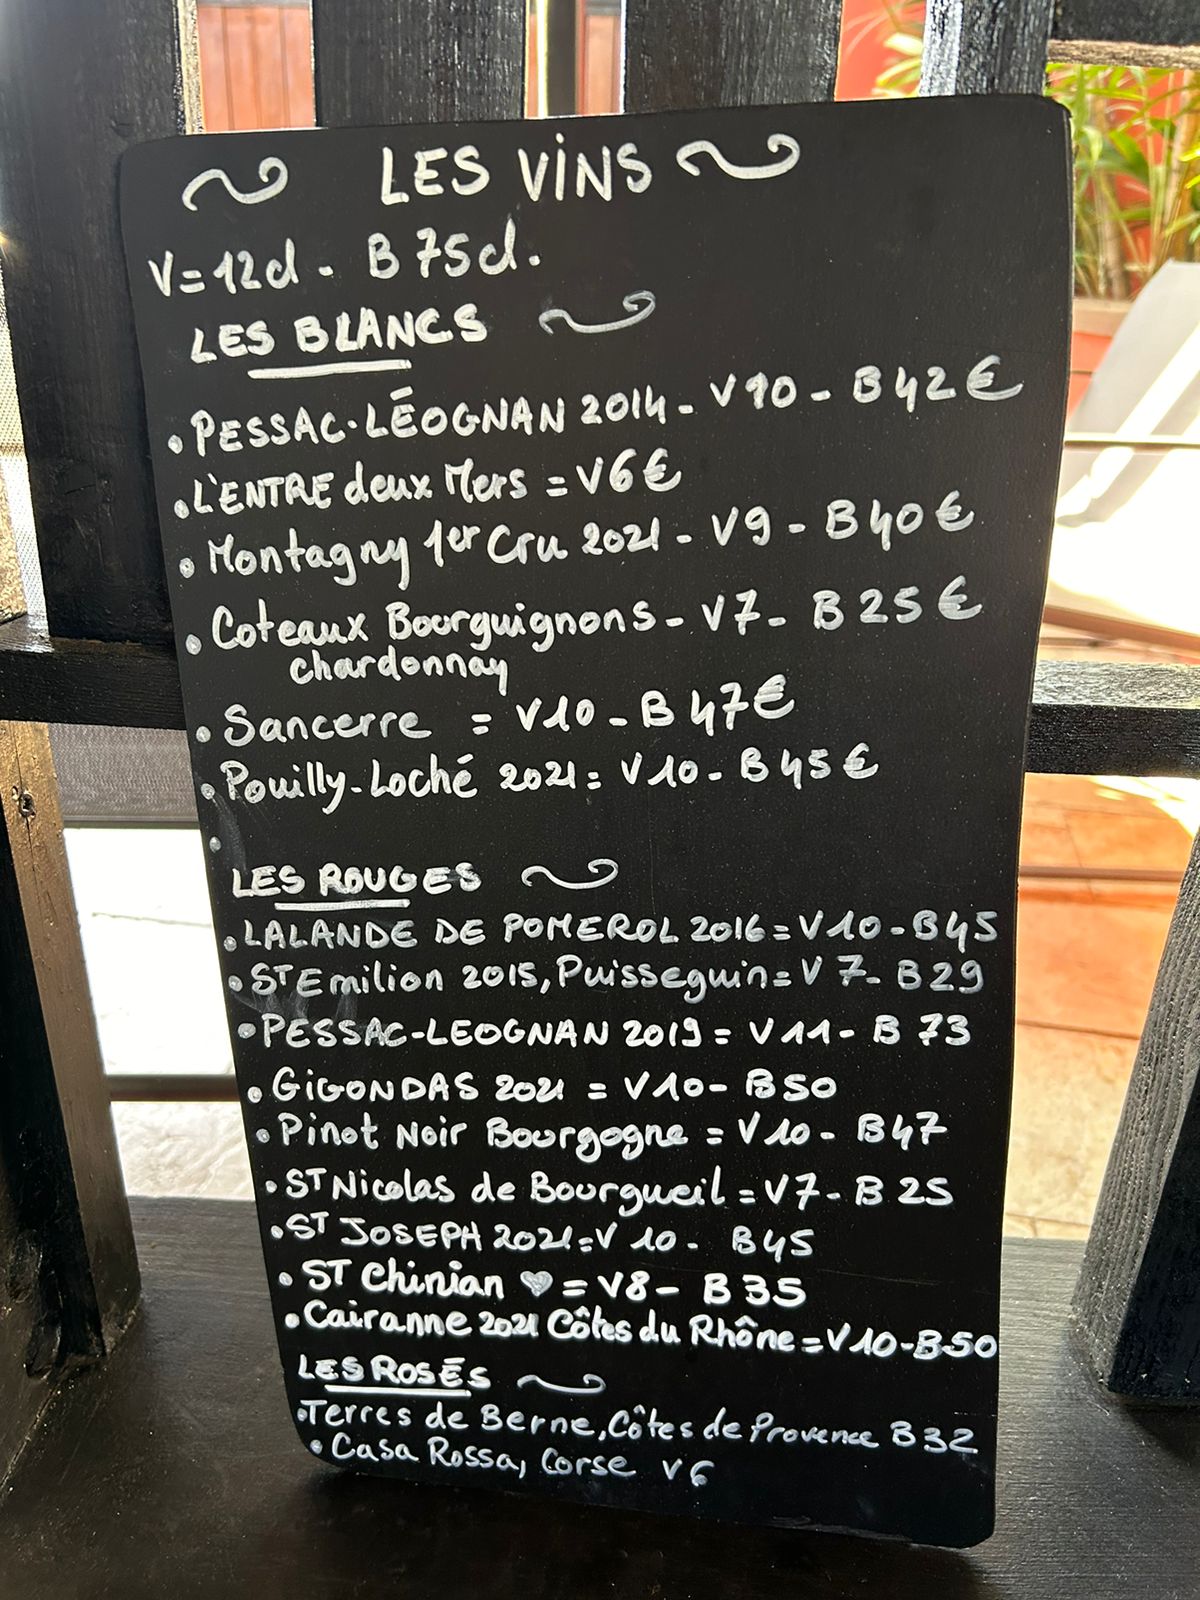 LES VINS
V=12cl - B 75cl.
LES BLANCS
• PESSAC-LÉOGNAN 2014 - V10 - B 42€
• L'ENTRE deux Mers = V6€
• Montagny 1er Cru 2021 - V9 - B40€
• Coteaux Bourguignons - V7 - B 25€
chardonnay
• Sancerre = V10 - B 47€
• Pouilly-Loché 2021 = V10 - B 45€
•
LES ROUGES
• LALANDE DE POMEROL 2016 = V10 - B45
• ST Emilion 2015, Puisseguin = V 7 - B 29
• PESSAC-LEOGNAN 2019 = V11 - B 73
• GIGONDAS 2021 = V10 - B50
• Pinot Noir Bourgogne = V10 - B47
• ST Nicolas de Bourgueil = V7 - B 25
• ST JOSEPH 2021 = V 10 - B45
• ST Chinian ♥ = V8 - B 35
• Cairanne 2021 Côtes du Rhône = V10 - B50
LES ROSÉS
• Terres de Berne, Côtes de Provence B32
• Casa Rossa, Corse V6